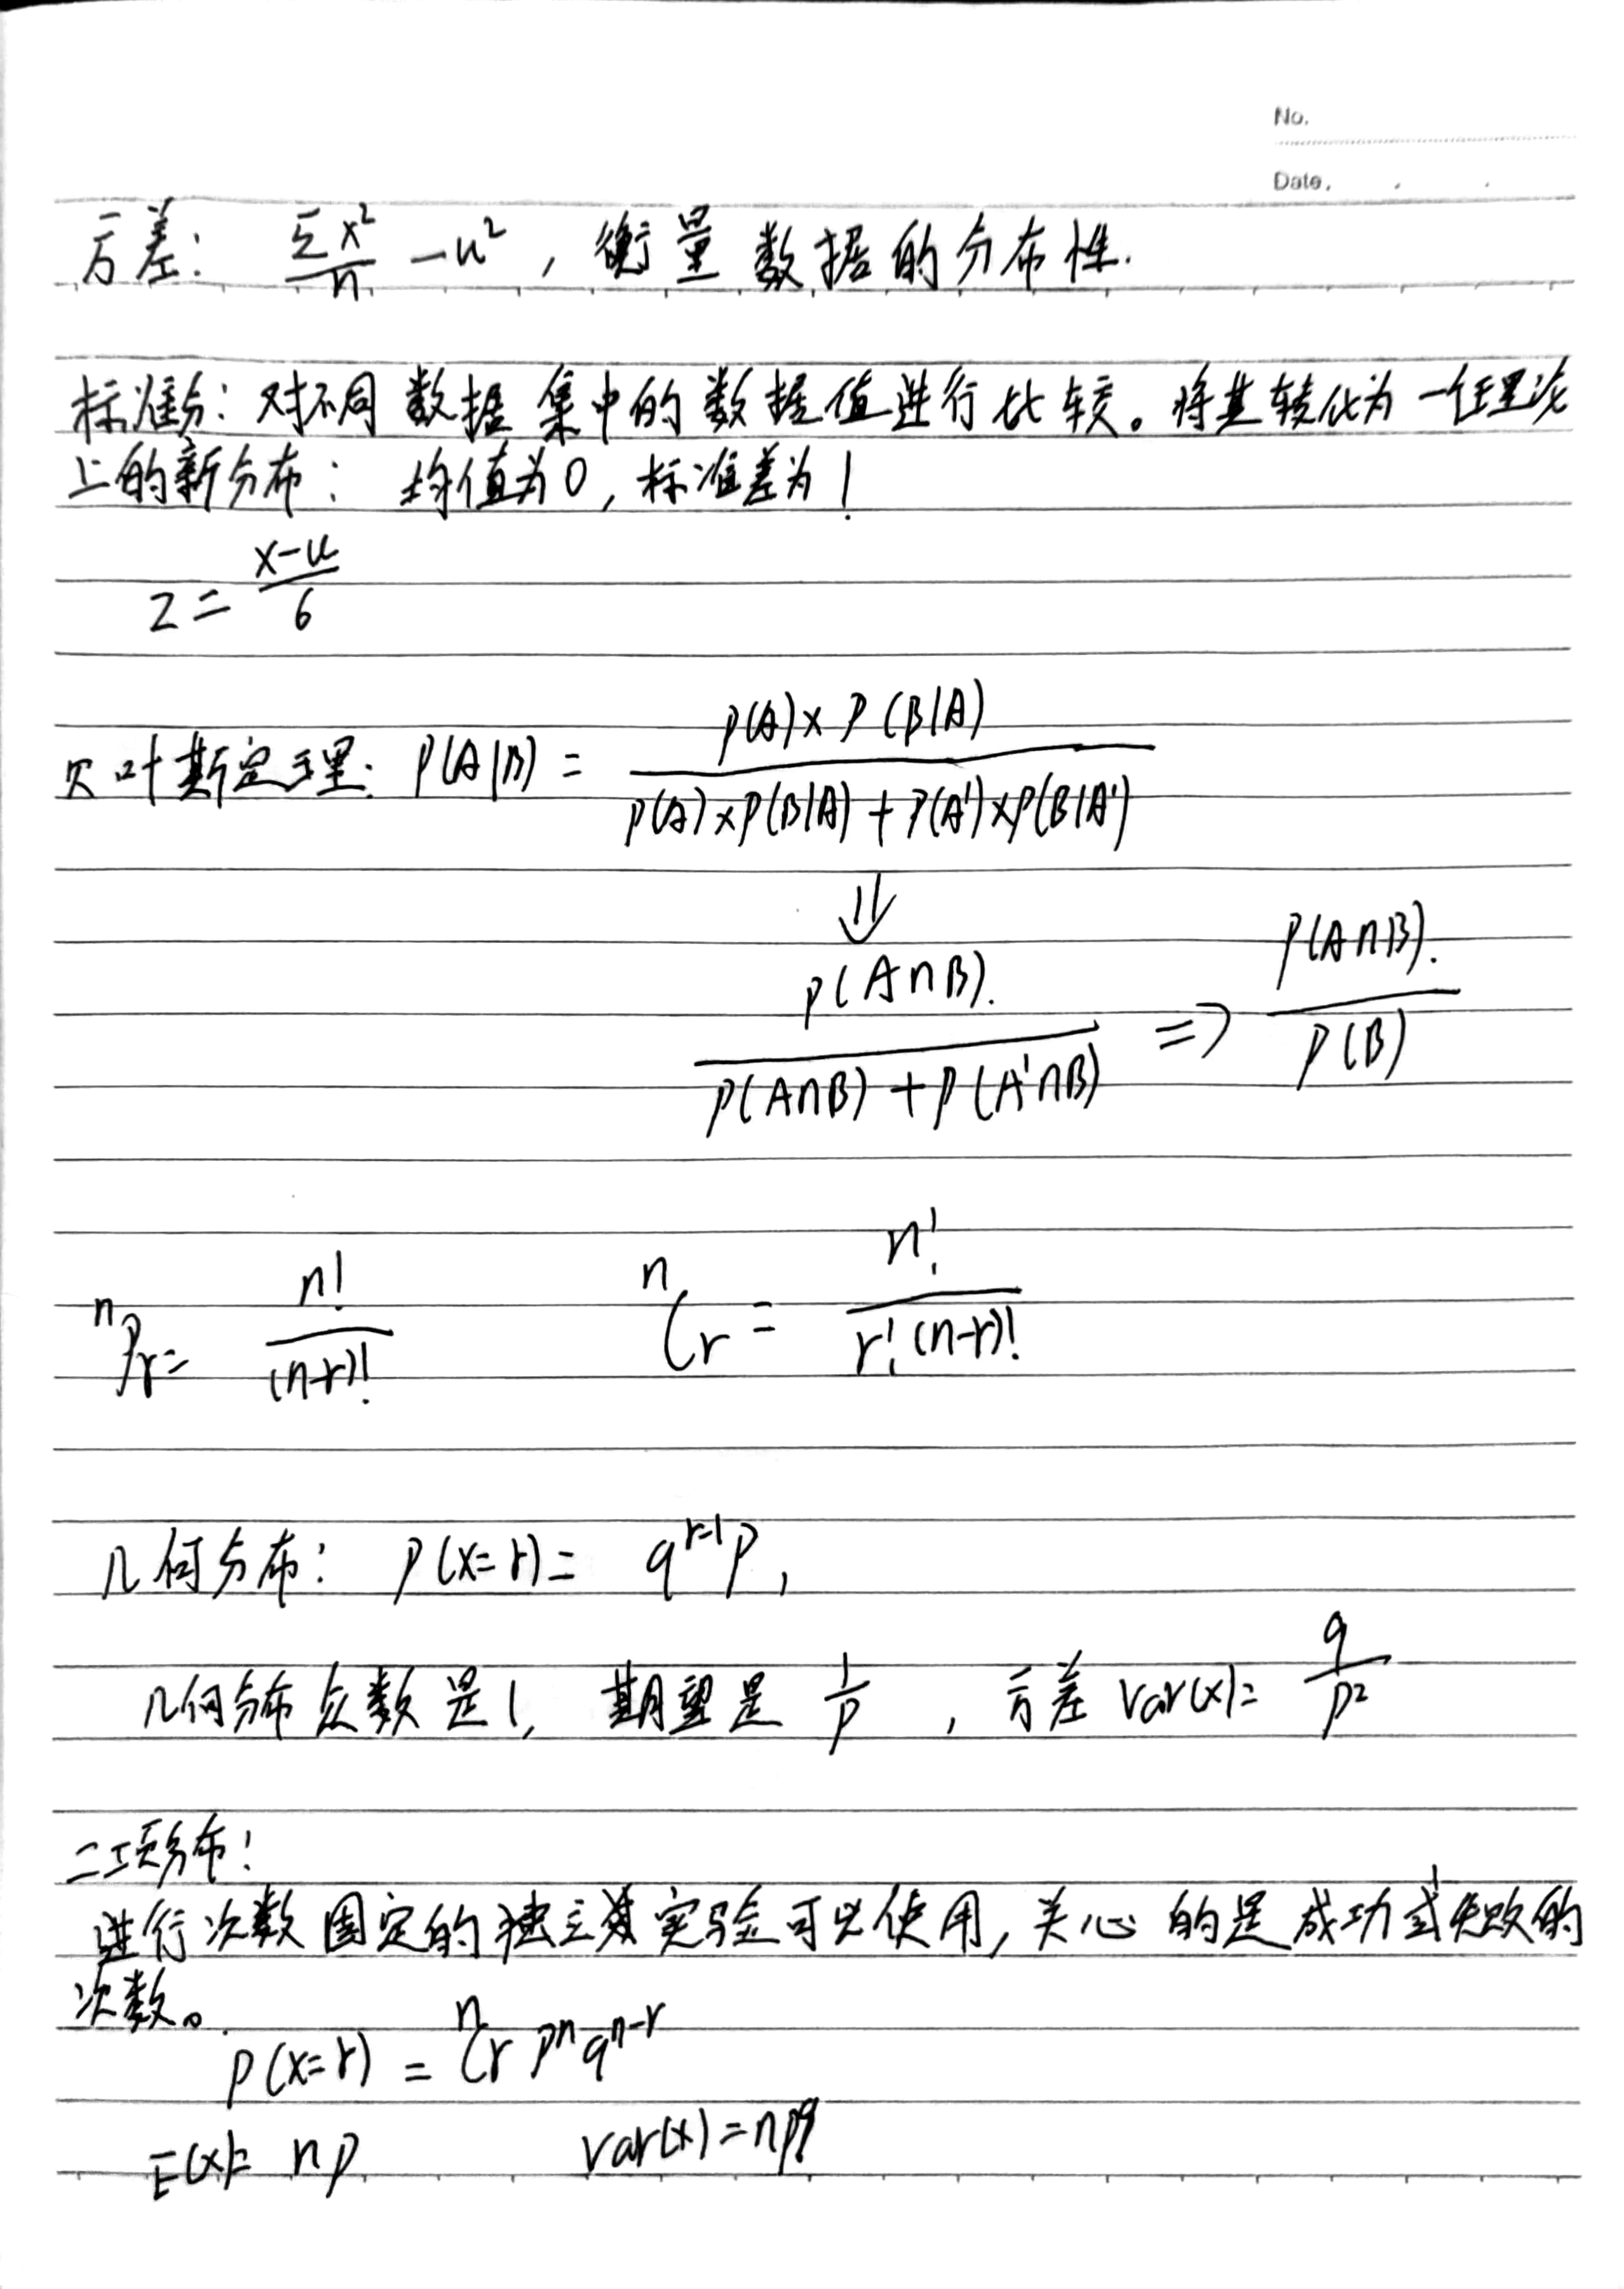 No.
Date.
方差: Σx²/n -u², 衡量数据的分布性.
标准分: 对不同数据集中的数据值进行比较。将其转化为一个理论
上的新分布: 均值为0, 标准差为1
z = (x-u)/6
贝叶斯定理: P(A|B) = P(A)×P(B|A) / P(A)×P(B|A)+P(A')×P(B|A')
⇓
P(A∩B). / P(A∩B)+P(A'∩B) => P(A∩B). / P(B)
ⁿPr= n!/(n-r)! ⁿCr = n!/r!(n-r)!
几何分布: P(x=r)= q^(r-1)p,
几何分布众数是1, 期望是 1/p , 方差 Var(x)= q/p²
二项分布:
进行次数固定的独立实验可以使用, 关心的是成功或失败的
次数。
P(x=r) = ⁿCr pⁿ q^(n-r)
E(x)= np Var(x)=npq